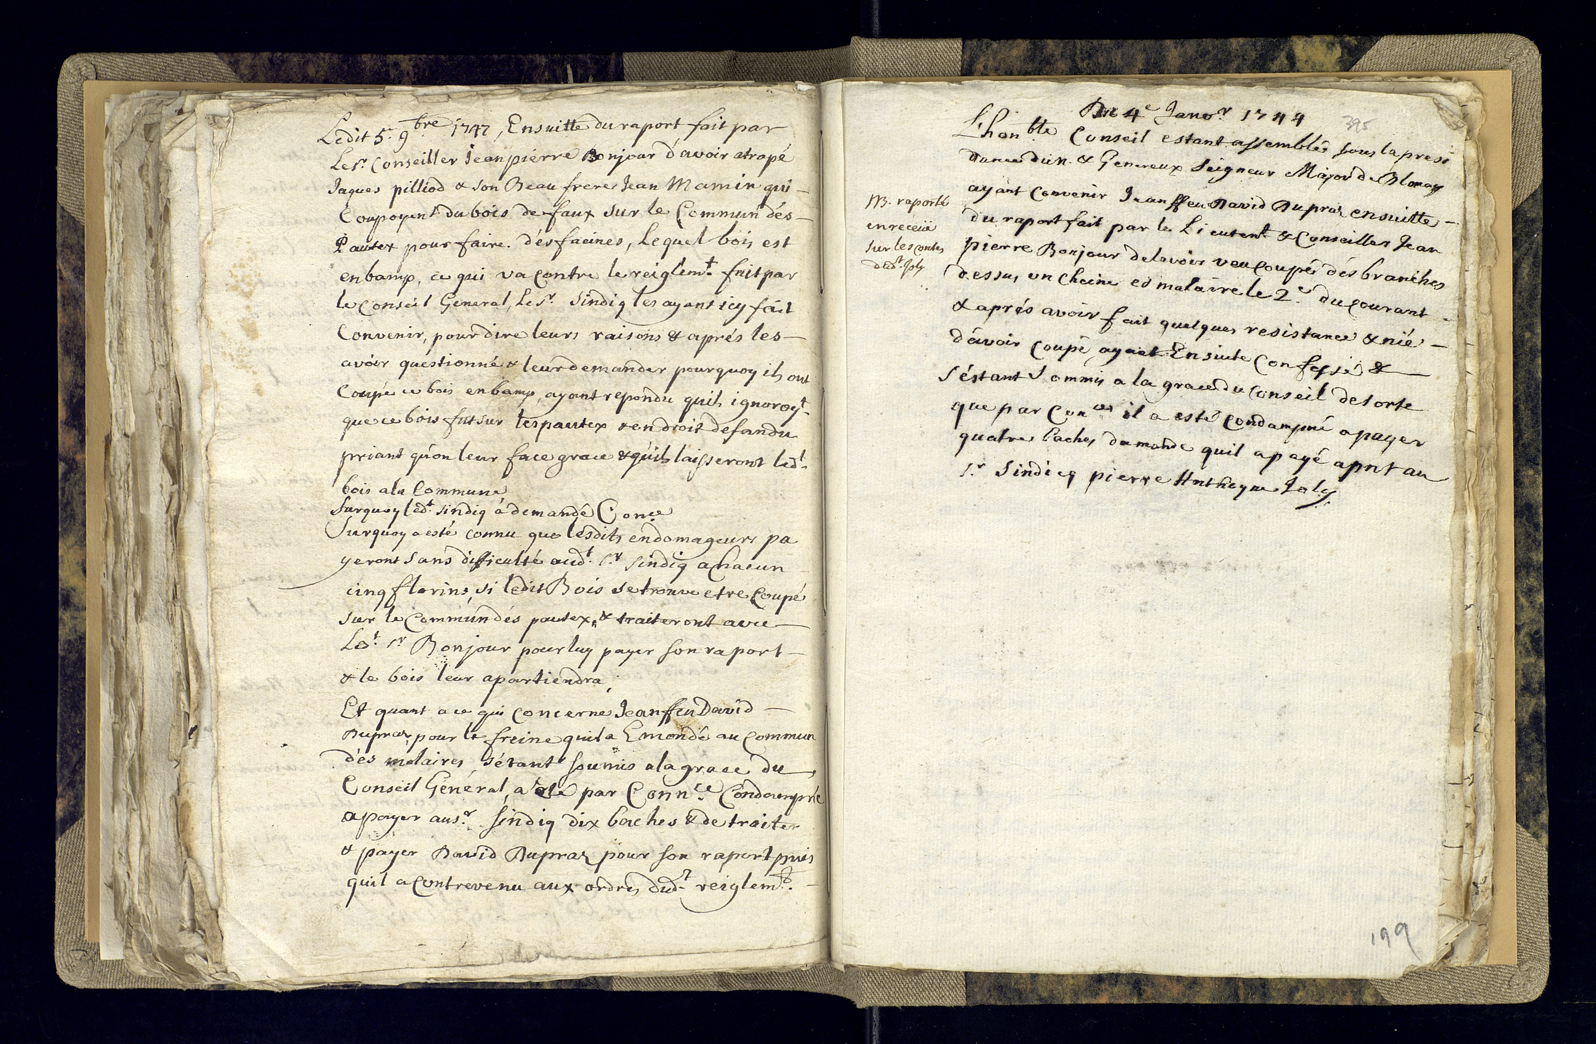 Ledit 5e. 9bre 1747, Ensuitte du raport fait par
Le Sr. Conseiller Jean pierre Bonjour d'avoir atrapé
Jaques pilliod & son Beau frere Jean Mamin qui
Coupoyent du bois de faux sur le Commun dés
Pautex pour faire dés facines, Lequel bois est
en bamp, ce qui va contre le reiglemt. fait par
le Conseil Général, Le Sr. Sindiq les ayant icy fait
Convenir, pour dire leurs raisons & aprés les
avoir questionné & leur demander pourquoy ils ont
Coupé ce bois en bamp, ayant repondu quils ignoroyt.
que ce bois fut sur les pautex & endroit defandu
priant qu'on leur face grace & qu'ils laisseront ledt.
bois a la Commune
Surquoy ledt. Sindiq a demandé Conce
Surquoy a esté connu que lesdits endomageurs pa
yeront sans difficulté audt. Sr. Sindiq a Chacun
cinq florins, si ledit Bois se trouve etre Coupé
sur le Commun dés pautex, & traiteront avec
Ledt. Sr Bonjour pour luy payer son raport
& le bois leur apartiendra,
Et quant a ce qui concerne Jean ffeu David
Dupraz, pour le freine quil a Emondé au Commun
dés malaires s'étant soumis a la grace du
Conseil Général, a été par Connce Condampné
a payer au Sr. Sindiq dix baches & de traiter
& payer David Dupraz pour son raport puis
quil a Contrevenu aux ordres dudt. reiglemt.
395
Du 4e Janvr 1744
L'honble Conseil estant assemblés sous la presi
dance du n. & Genereux Seigneur Major de Blonay
ayant Convenir Jean ffeu David Dupraz ensuitte
du raport fait par le Lieutent & Conseiller Jean
pierre Bonjour de lavoir veu coupé dés branches
dessus un Cheine es malaire le 2e. du courant
& aprés avoir fait quelques resistance & nié
d'avoir coupé, ayant Ensuite Confessé &
s'éstant Sommis a la grace du Conseil de sorte
que par Conces il a esté Condampné a payer
quatre baches damande quil a payé apnt au
Sr Sindicq pierre Antheyne Joly
NB. raporté
en receu
sur les contes
dudt. Joly
199